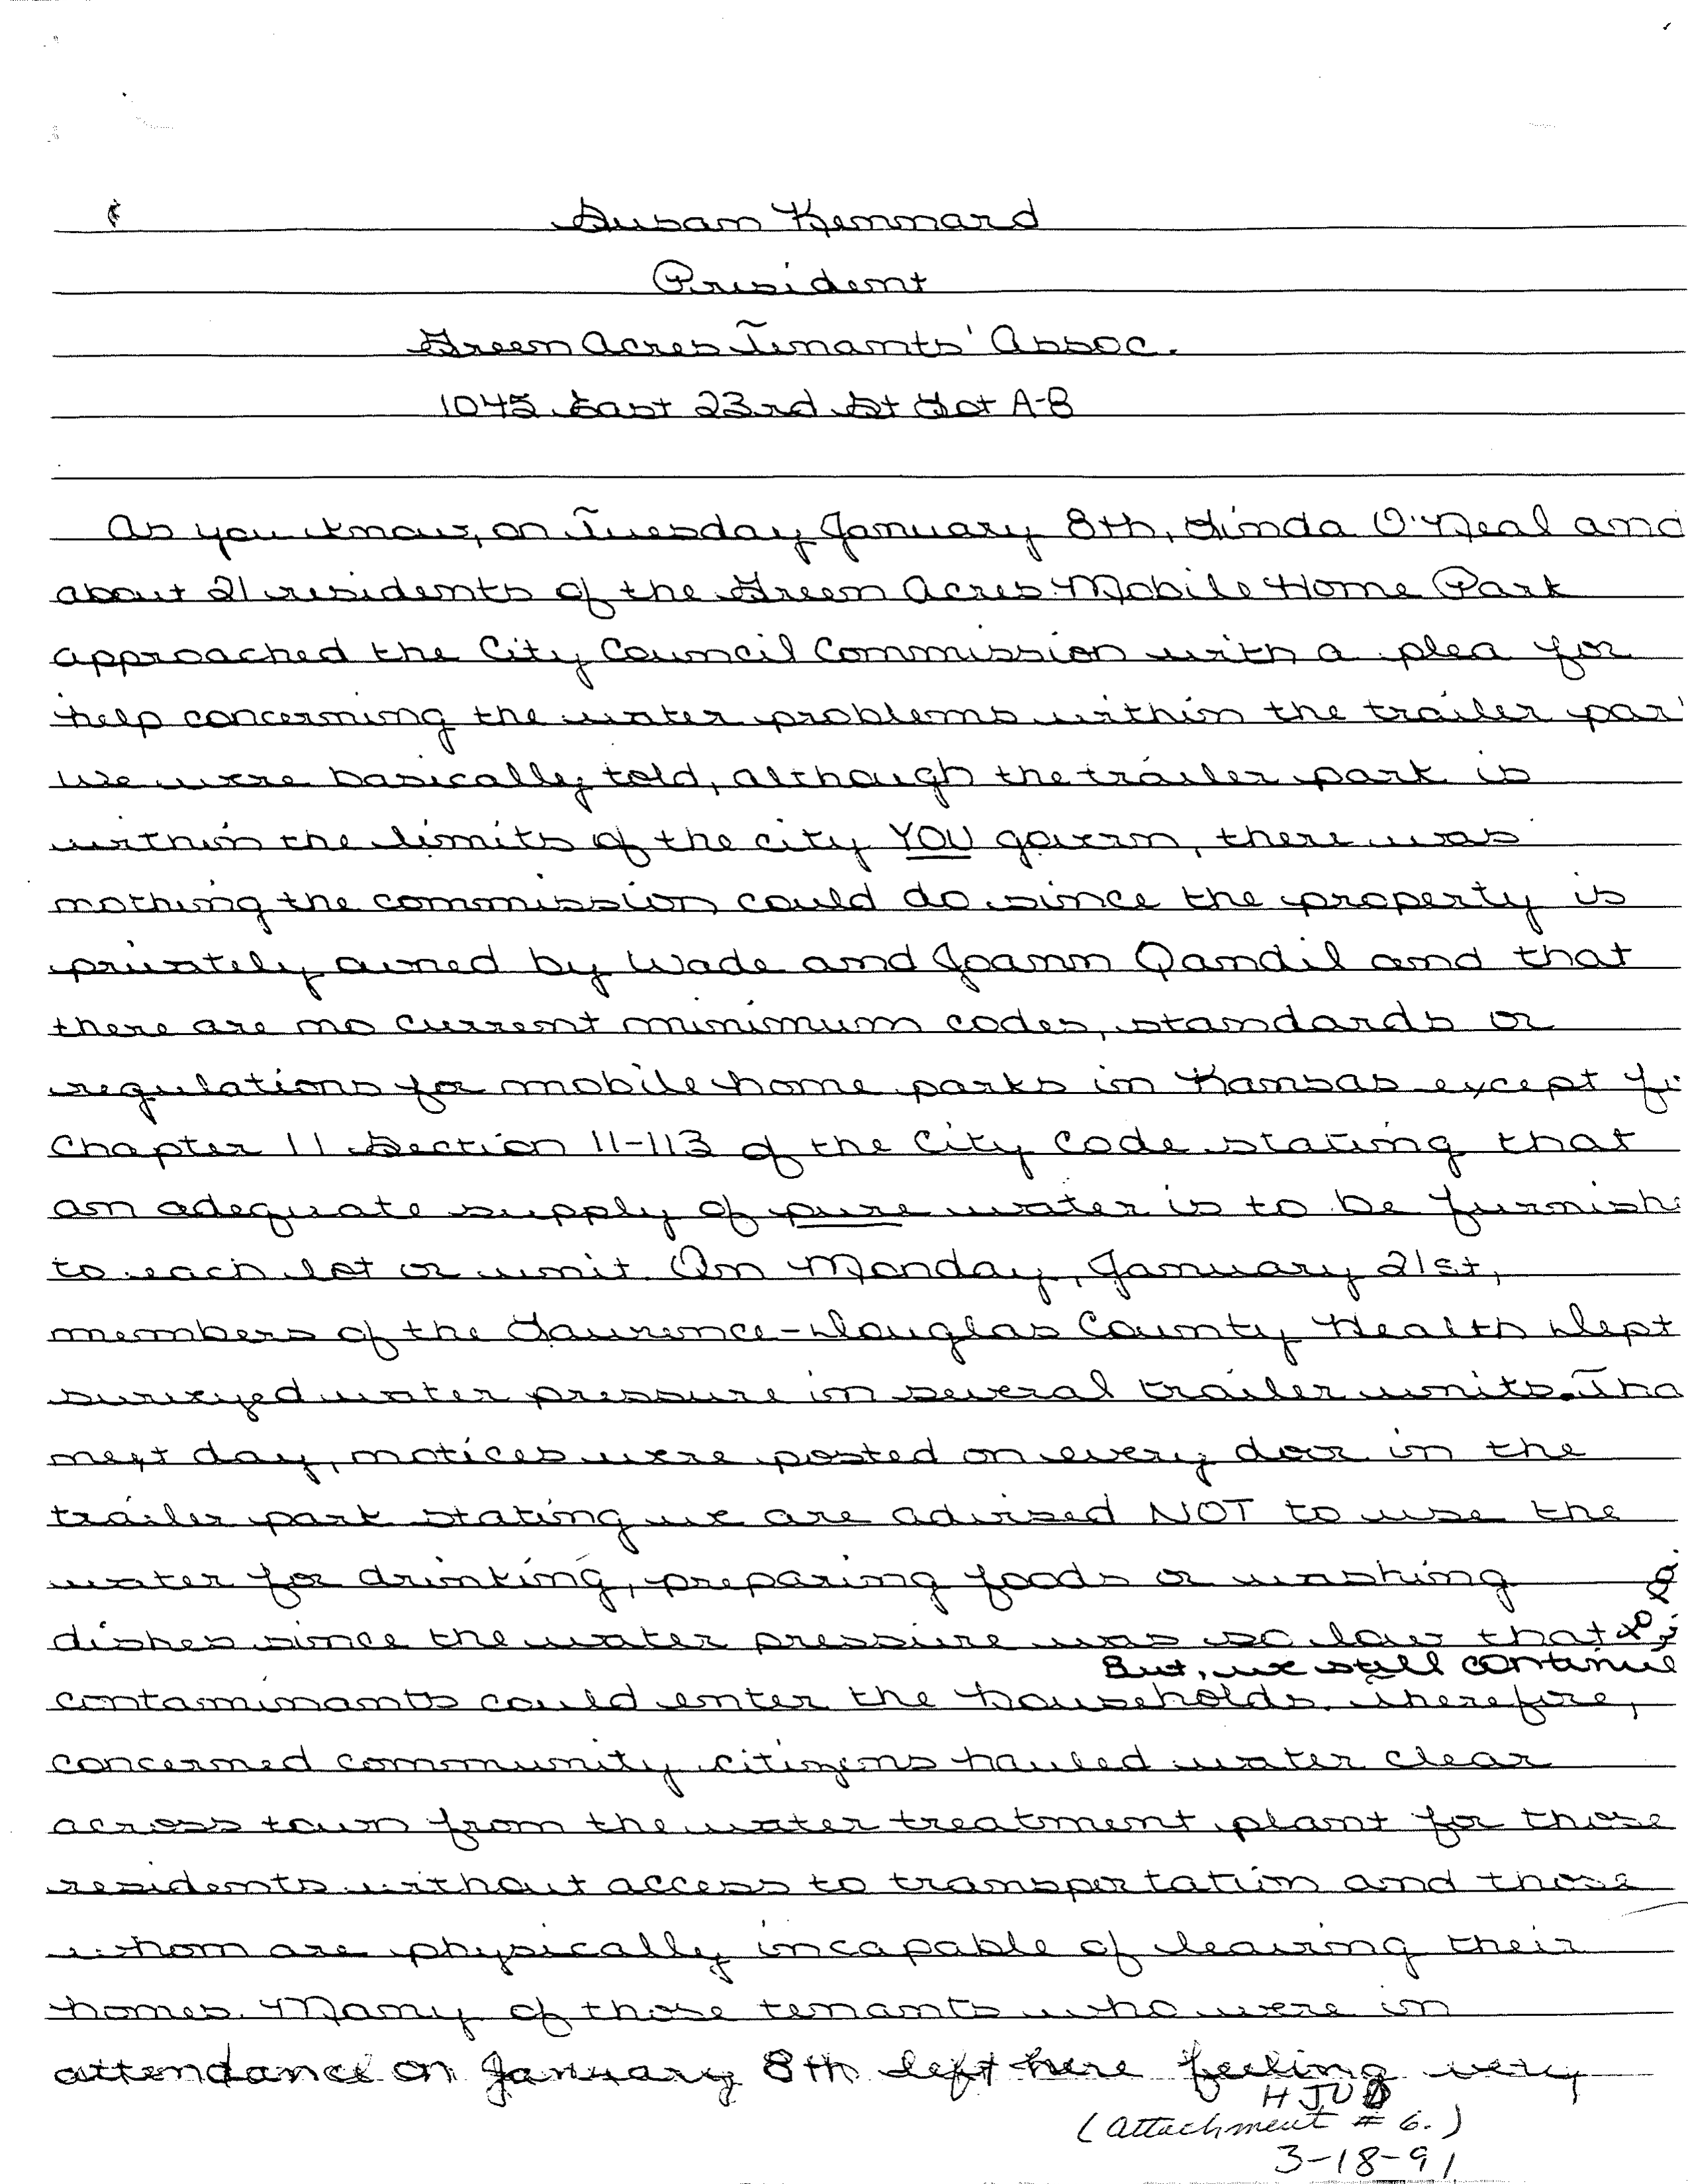 Susan Kennard
President
Green Acres Tenants' Assoc.
1045 East 23rd St Lot A-B
As you know, on Tuesday January 8th, Linda O'Neal and
about 21 residents of the Green Acres Mobile Home Park
approached the City Council Commission with a plea for
help concerning the water problems within the trailer par
We were basically told, although the trailer park is
within the limits of the city YOU govern, there was
nothing the commission could do since the property is
privately owned by Wade and Joann Qandil and that
there are no current minimum codes, standards or
regulations for mobile home parks in Kansas except fo
Chapter 11 Section 11-113 of the City Code stating that
an adequate supply of pure water is to be furnish
to each lot or unit. On Monday, January 21st,
members of the Lawrence-Douglas County Health Dept
surveyed water pressure in several trailer units. The
next day, notices were posted on every door in the
trailer park stating we are advised NOT to use the
water for drinking, preparing foods or washing
dishes since the water pressure was so low that
But, we still continue
contaminants could enter the households. Therefore,
concerned community citizens hauled water clear
across town from the water treatment plant for those
residents without access to transportation and those
whom are physically incapable of leaving their
homes. Many of those tenants who were in
attendance on January 8th left here feeling very
HJUD
(Attachment # 6.)
3-18-91